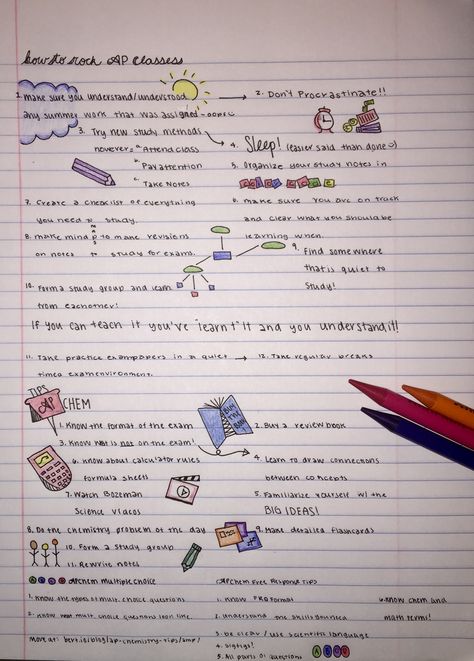 how to rock AP Classess
1. make sure you understand/understood → 2. Don't Procrastinate!!
any summer work that was assigned
3. Try new study methods
4. Sleep! (easier said than done ☺)
however - a. Attend class
b. Pay attention
c. Take Notes
5. Organize your study notes in
color codes
7. Create a checklist of everything
you need to study.
6. make sure you are on track
and clear what you should be
learning when.
8. make mind maps to make revisions
on notes to study for exams.
9. Find somewhere
that is quiet to
study!
10. Form a study group and learn
from eachother!
If you can teach it you've "learnt" it and you understand it!!
11. Take practice exam papers in a quiet → 12. Take regular breaks
timed exam environment.
TIPS
AP CHEM
1. Know the format of the exam
BIG IDEAS
2. Buy a review book
3. Know what is not on the exam!
6. Know about calculator rules
formula sheets
4. Learn to draw connections
between concepts
7. Watch Bozeman
Science videos
5. Familiarize yourself w/ the
BIG IDEAS!
8. Do the chemistry problem of the day
9. Make detailed flashcards
10. Form a study group
11. Rewrite notes
A B C D AP Chem multiple choice
AP Chem Free Response Tips
1. Know the types of mult. choice questions
1. Know FRQ format
6. Know chem and
math terms!
2. Know what mult. choice questions look like.
2. understand the skills
3. be clear / use scientific language
more at: bert.ie/blog/ap-chemistry-tips/amp/
4. sigfigs!
5. All parts of questions